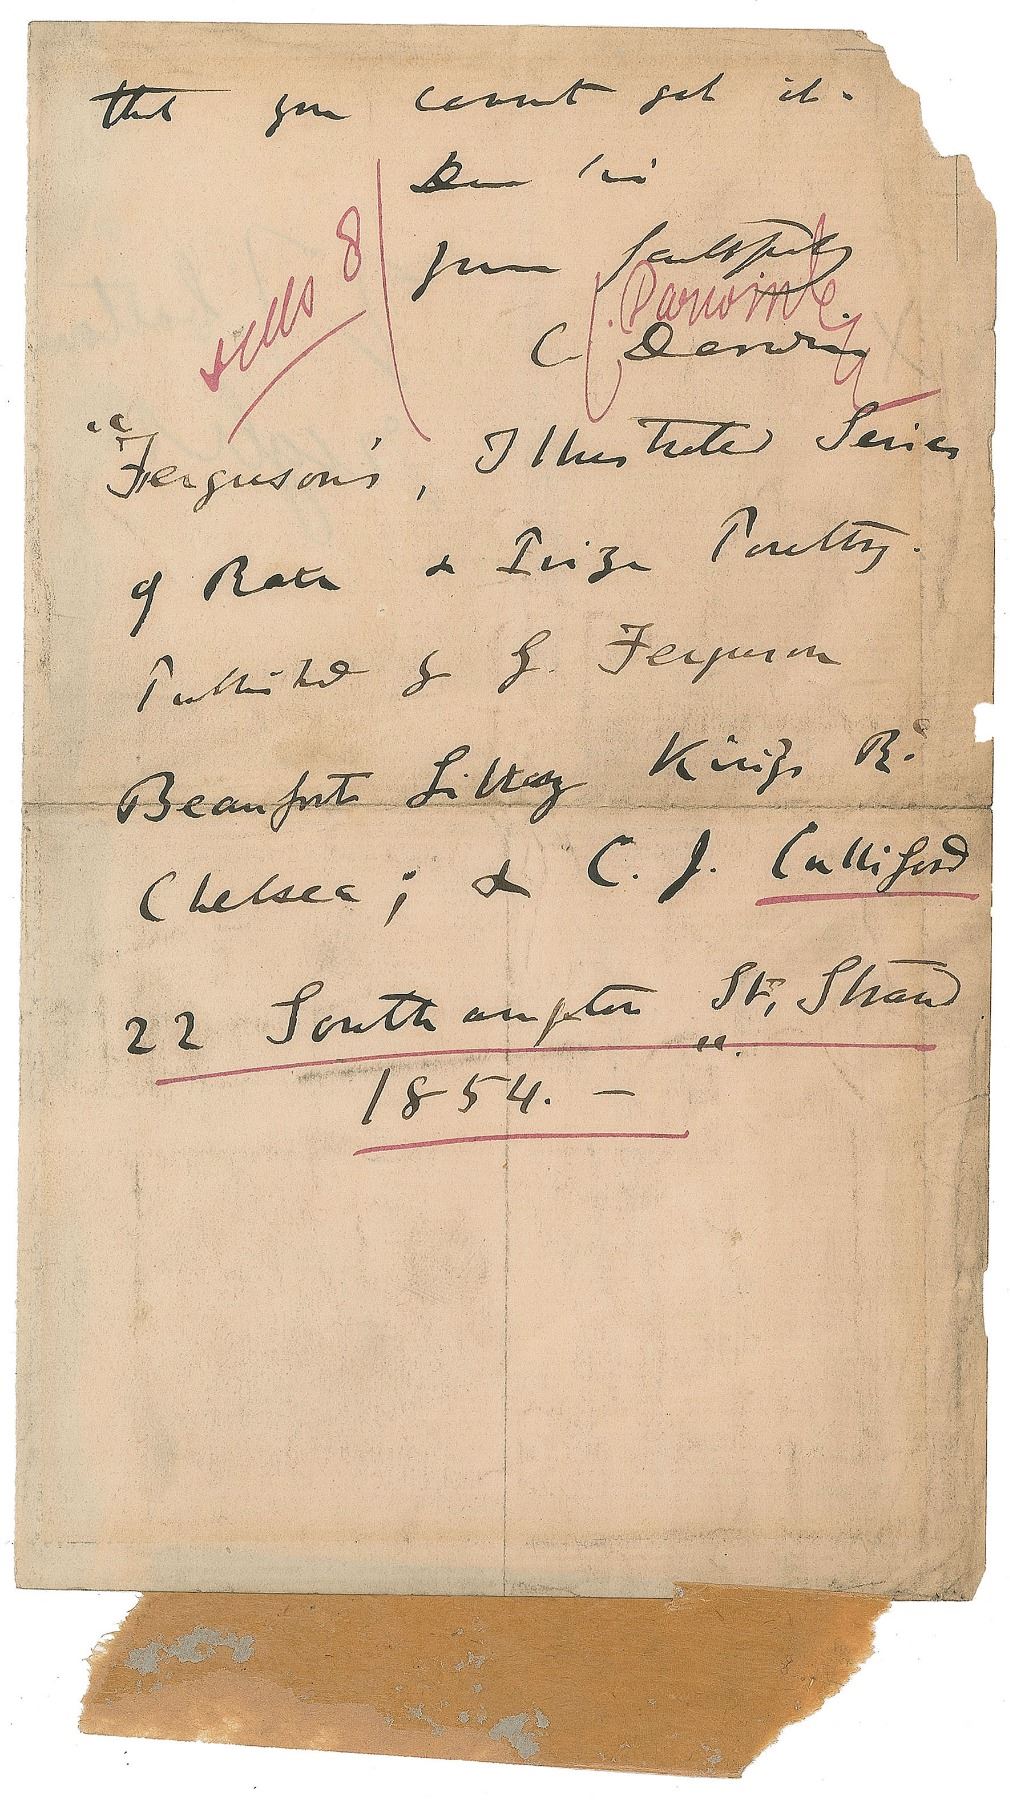 that you cannot get it.
Dear Sir
Yours faithfully
C. Darwin
Darwin
"Ferguson's, Illustrated Series
of Rare & Prize Poultry.
Published by G. Ferguson
Beaufort Library Kings Rd
Chelsea; & C. J. Culliford
22 Southampton St, Strand
1854. —